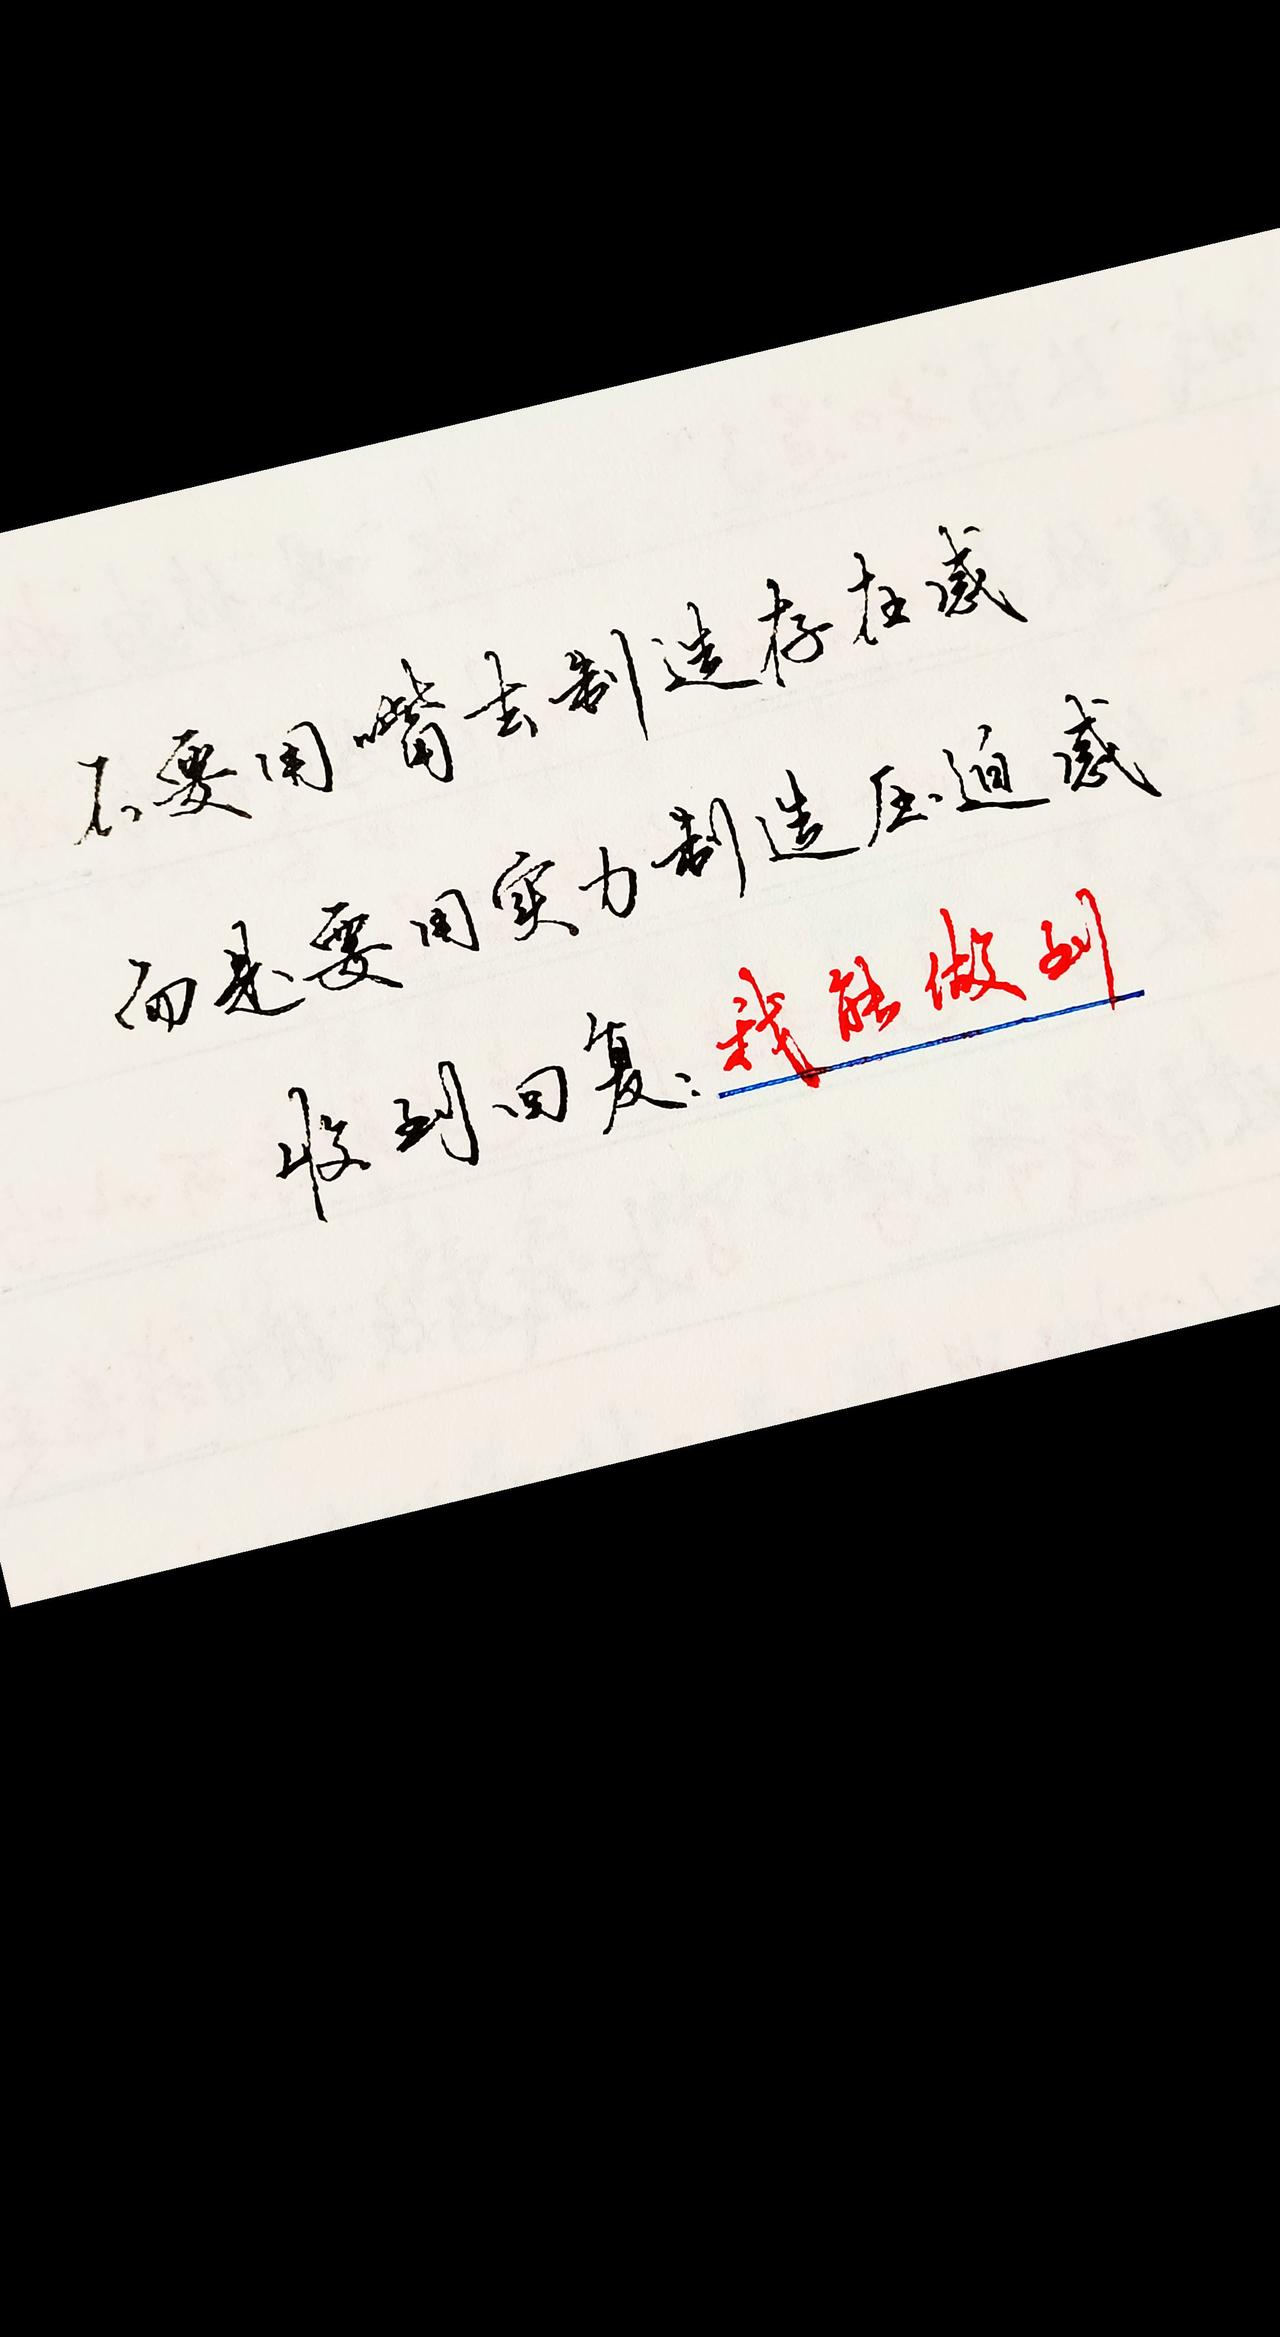 不要用嘴去制造存在感
而是要用实力制造压迫感
收到回复：我能做到